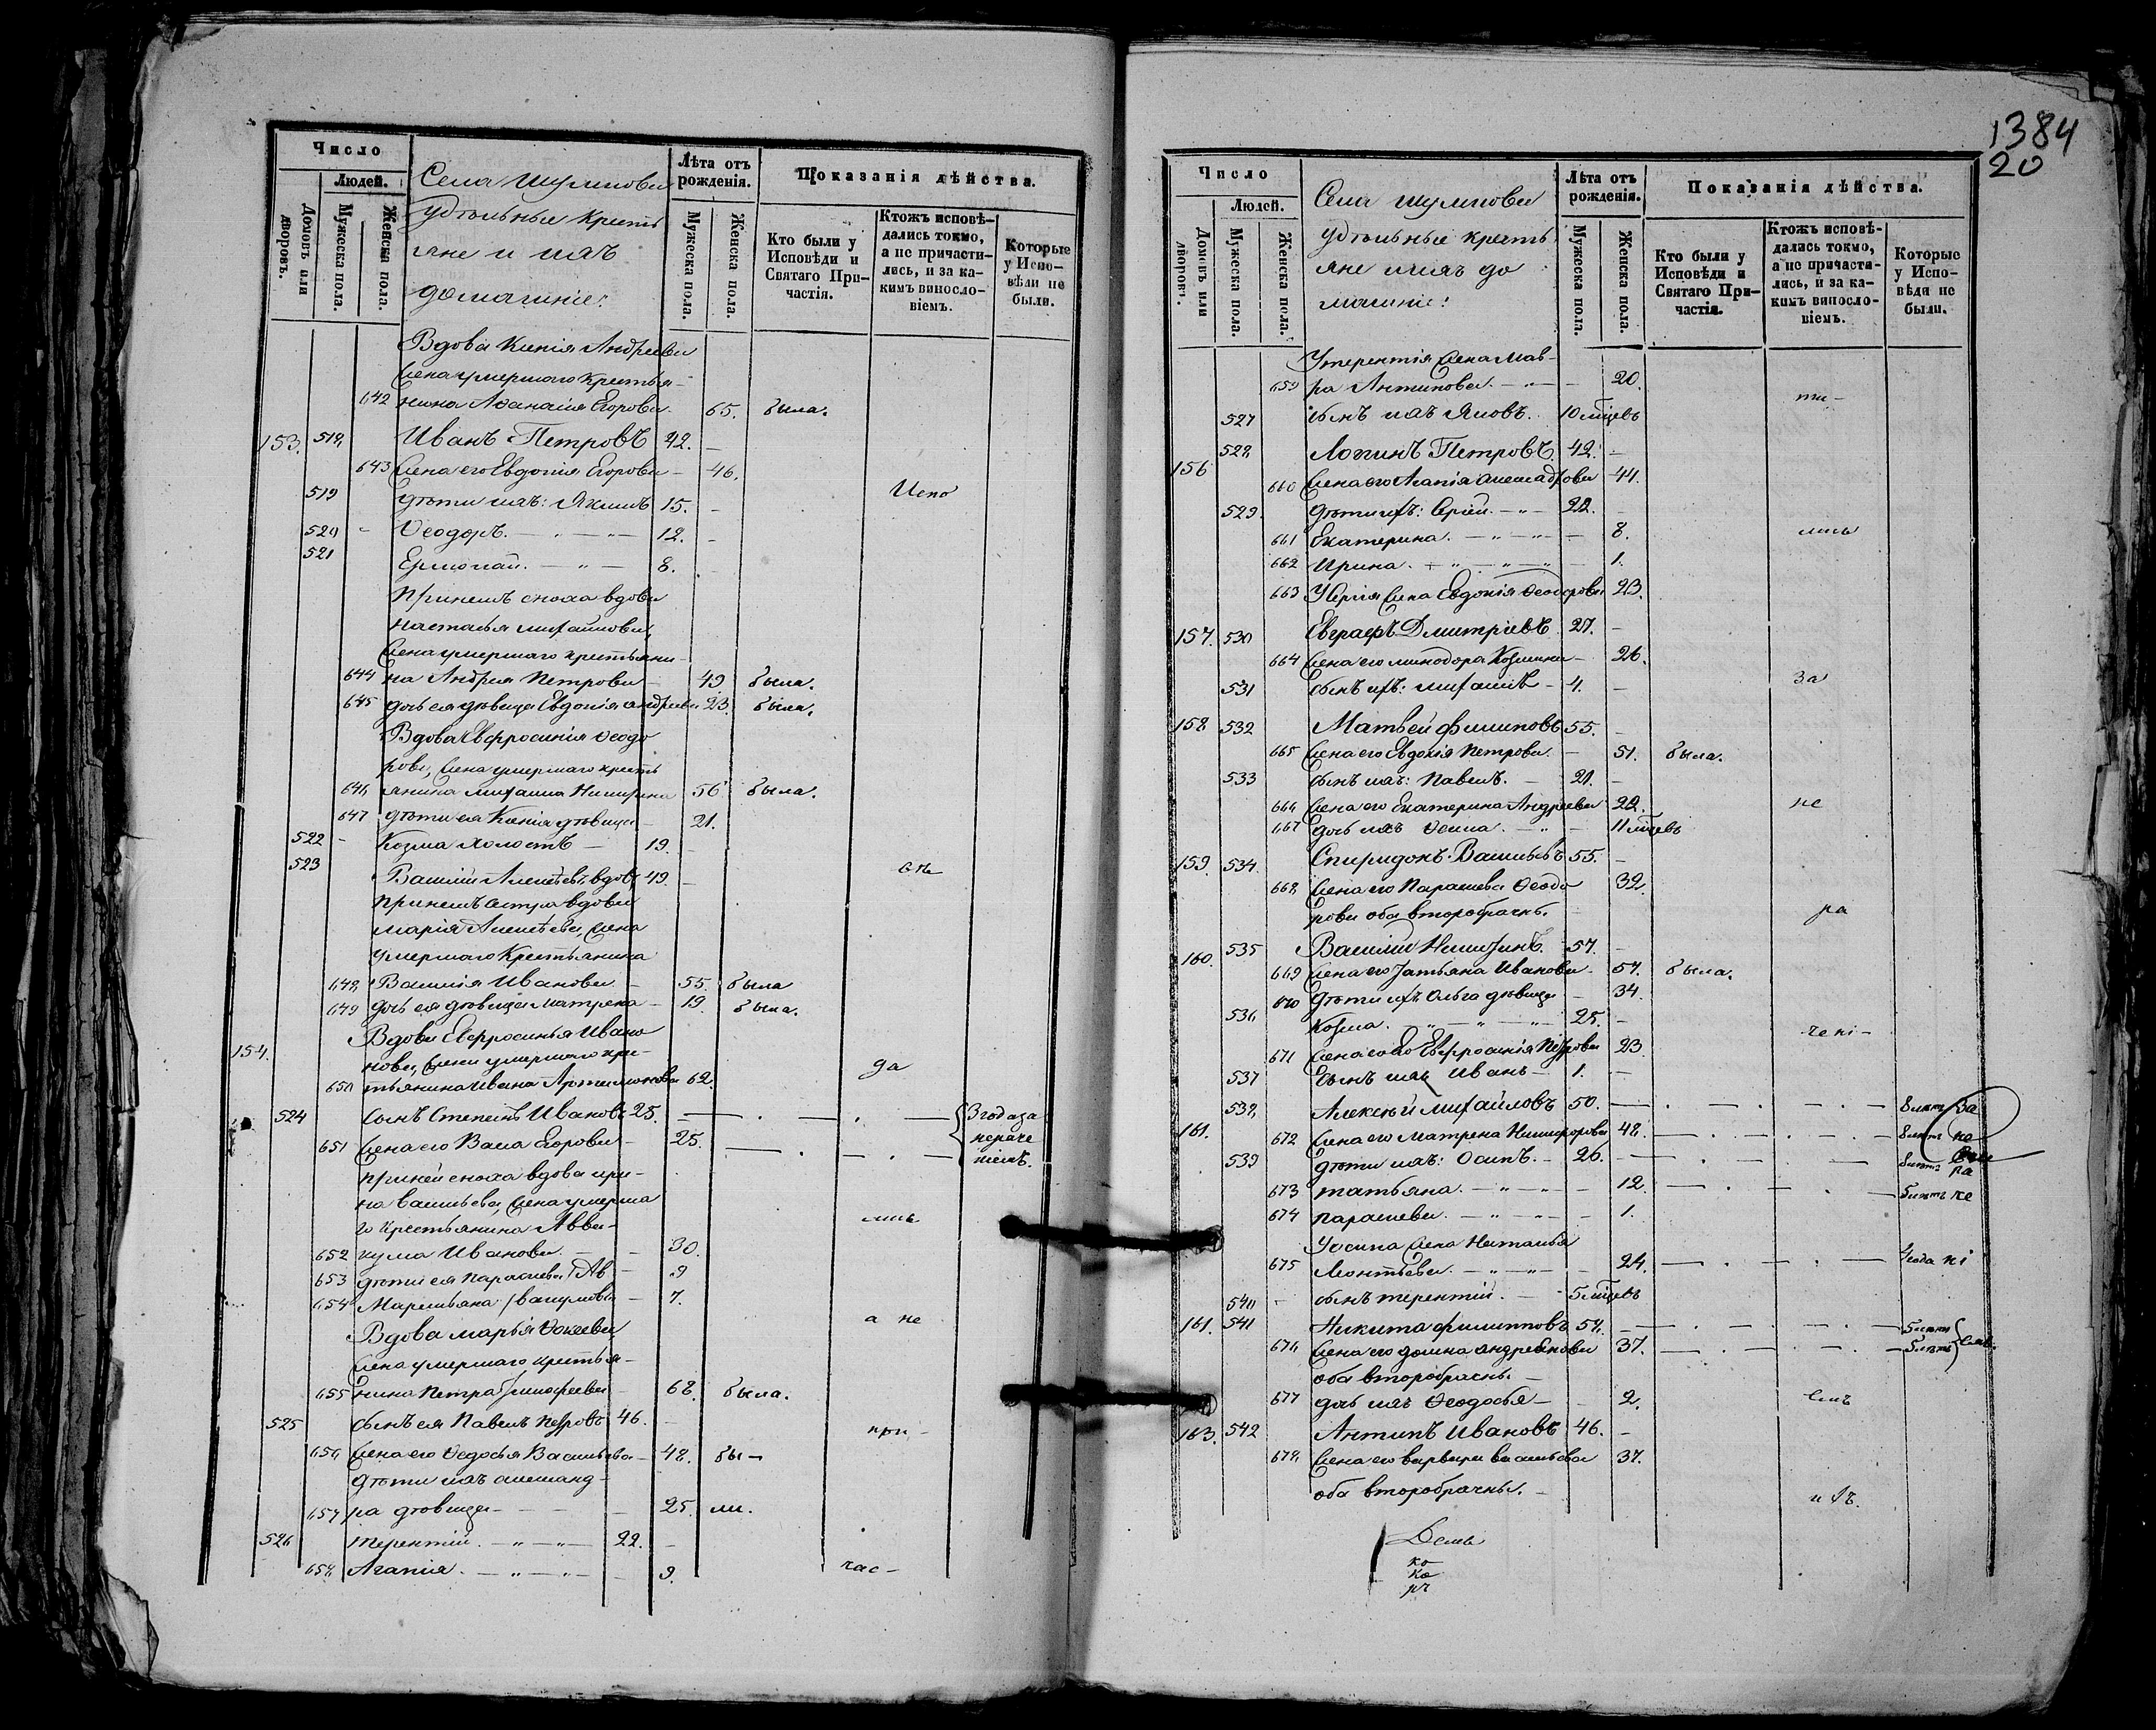 Число
Людей.
Домовъ или дворовъ.
Мужеска пола.
Женска пола.
Села
удѣльные кресть
яне и ихъ
домашніе:
Лѣта отъ рожденія.
Мужеска пола.
Женска пола.
Показанія дѣйства.
Кто были у Исповѣди и Святаго Причастія.
Ктожъ исповѣдались токмо, а не причастились, и за какимъ винословіемъ.
Которые у Исповѣди не были.
Вдова Ксенія Андреева
жена умершаго крестья-
642 нина Аѳанасія Егорова 65. была.
153. 518. Иванъ Петровъ 42. –
643 жена его Евдокія Егорова – 46.
519 дѣти ихъ: Якимъ 15. – Испо
520 – Ѳеодоръ. 12. –
521 Ермолай. 8. –
При немъ сноха вдова
Настасья Михайлова,
жена умершаго крестьяни-
644 на Андрея Петрова 49 была.
645 дочь ея дѣвица Евдокія Андреева 23. была.
Вдова Евфросинія Ѳеодо
рова, жена умершаго кресть
646 янина Михаила Никитина 56 была.
647 дѣти ея Ксенія дѣвица – 21.
522 – Козма холостъ – 19. –
523 Василій Алексѣевъ вдовъ 49. –
При немъ сестра вдова
Марія Алексѣева, жена
умершаго крестьянина
648 Василія Иванова – 55. была
649 дочь ея дѣвица Матрена – 19. была.
154. Вдова Евфросинья Ивано
нова, жена умершаго кре-
650 стьянина Ивана Артамонова 62. да
524 сынъ Степанъ Ивановъ 25. 3 года за
651 жена его Васса Егорова – 25. нераче
ніемъ.
при ней сноха вдова Ири-
на Васильева, жена умерша
го крестьянина Авва- лись
652 кума Иванова. – 30.
653 дѣти ея Параскева Ав – 9
654 Маремьяна вакумовы – 7.
а не
Вдова Марья Ѳокеева
жена умершаго крестья-
655 нина Петра Тимоѳеева – 68. была.
525 сынъ ея Павелъ Петровъ 46. – при-
656 жена его Ѳедосья Васильева – 48. бы-
дѣти ихъ Александ-
657 ра дѣвица – 25. ли.
526 Терентій. 22. –
658 Агапія. 9. час-
1384
20
Число
Людей.
Домовъ или дворовъ.
Мужеска пола.
Женска пола.
Села
удѣльные кресть
яне и ихъ до
машніе:
Лѣта отъ рожденія.
Мужеска пола.
Женска пола.
Показанія дѣйства.
Кто были у Исповѣди и Святаго Причастія.
Ктожъ исповѣдались токмо, а не причастились, и за какимъ винословіемъ.
Которые у Исповѣди не были.
У Терентія жена Мав-
659 ра Антипова. 20.
ти-
527 сынъ ихъ Яковъ. 10 мцевъ
156 528. Логинъ Петровъ. 42. –
660 жена его Агапія Александрова 44.
529. дѣти ихъ: Сергій. 22.
661 Екатерина. 8. лись
662 Ирина. 1.
663 У Сергія жена Евдокія Ѳеодорова 23.
157. 530 Дмитріевъ 27. –
664 жена его Минодора Козмина – 26.
531 сынъ ихъ: Михаилъ – 4. – за
158 532 Матвей Филиповъ 55. –
665 жена его Евдокія Петрова. – 51. была.
533 сынъ ихъ: Павелъ. – 21. –
666 жена его Екатерина Андреева 22. не
667 дочь ихъ 11 мцевъ
159. 534. Спиридонъ Васильевъ 55. –
668. жена его Параскева Ѳеодо 32.
рова оба второбрачн. ра
160. 535 Василій Никитинъ. 57. –
669 жена его Татьяна Иванова. 57. была.
670 дѣти ихъ Ольга дѣвица – 34.
536 Козма. 25. –
671 жена его Евфросинія Петрова 23. чені-
537 сынъ ихъ Иванъ – 1. –
538. Алексѣй Михайловъ 50. 8 лѣтъ за
161. 672 жена его Матрена Никифорова 48. 8 лѣтъ не
539 дѣти ихъ: Осипъ. – 26. 8 лѣтъ ра
673 Татьяна. 12. 5 лѣтъ че
674 Параскева. 1.
У Осипа жена Наталья
675 Леонтьева. 24. 4 года ні
540 – сынъ Терентій. – 5 мцевъ
161. 541 Никита Филипповъ 54. 5 лѣтъ
676 жена его Домна Андреянова 37. 5 лѣтъ емъ.
оба второбрачны. –
677 дочь ихъ Ѳеодосья – 2. емъ
163. 542 Антипъ Ивановъ 46. –
678. жена его Варвара Васильева 37.
оба второбрачны. – ихъ.